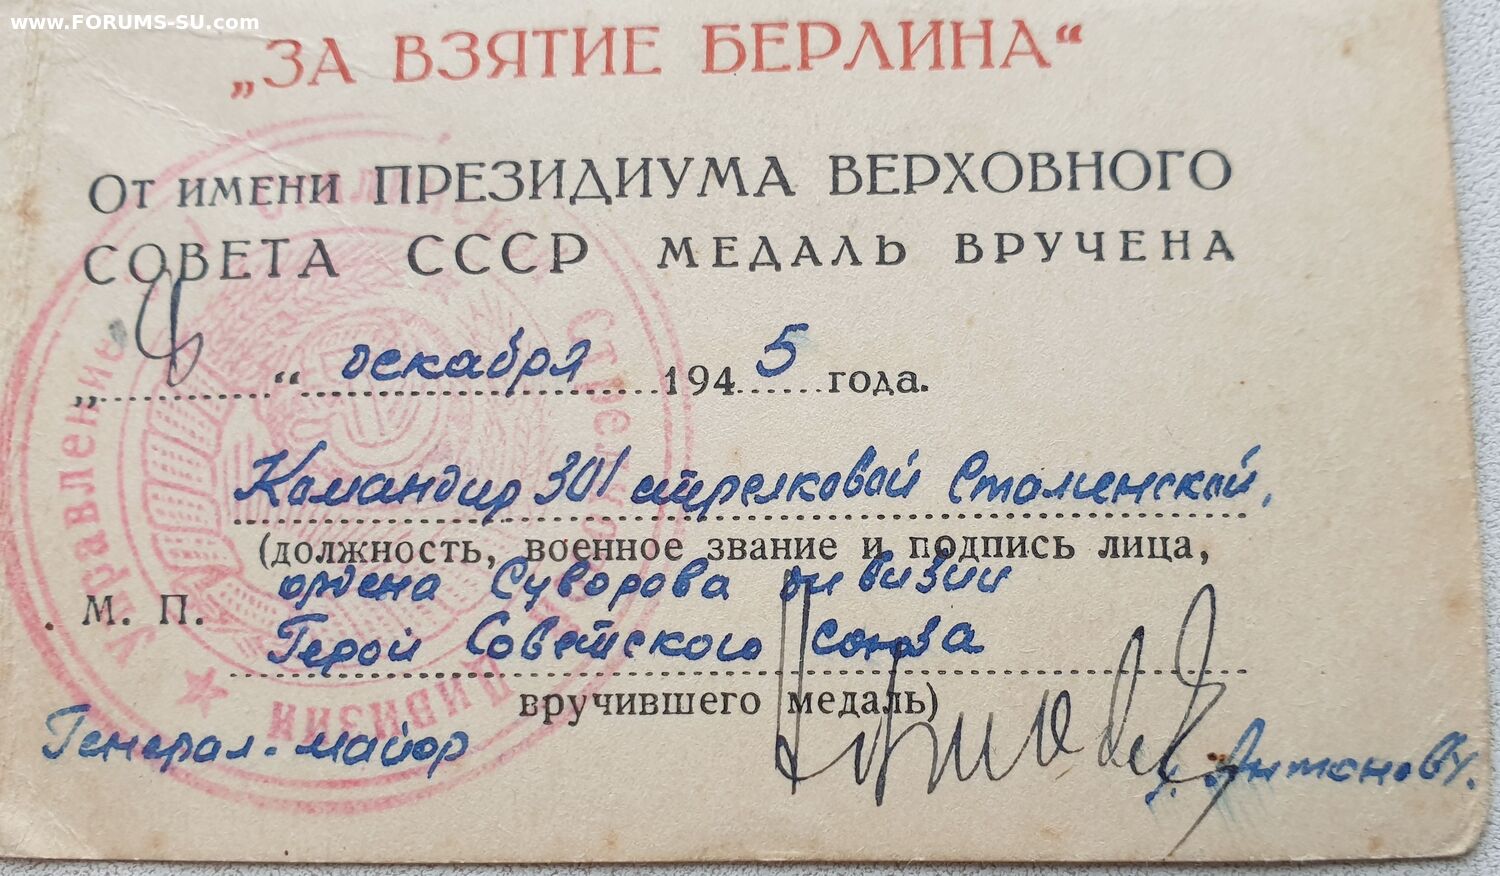 www.FORUMS-SU.com
„ЗА ВЗЯТИЕ БЕРЛИНА“
От имени ПРЕЗИДИУМА ВЕРХОВНОГО
СОВЕТА СССР МЕДАЛЬ ВРУЧЕНА
„ “ декабря 1945 года.
Командир 301 стрелковой Сталинской,
(должность, военное звание и подпись лица,
ордена Суворова дивизии
М. П.
Герой Советского союза
вручившего медаль)
Генерал-майор Антонов
Управление стрелковой дивизии